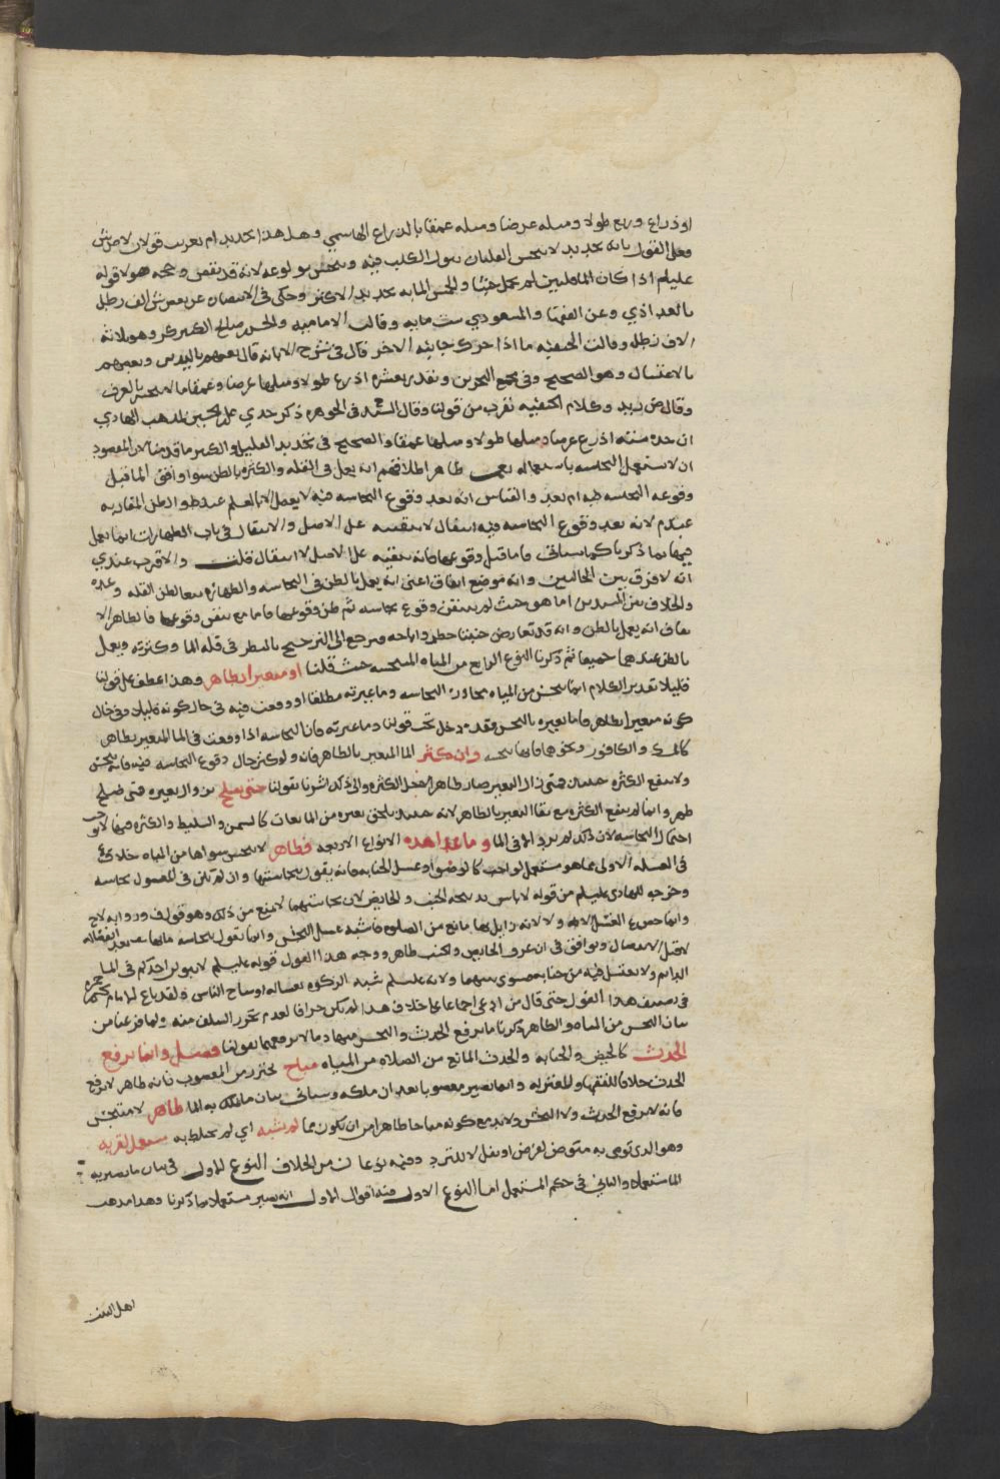 او ذراع وربع طولا ومثله عرضا ومثله عمقا بالذراع الهاشمي وهل هذا تحديد ام تقريب قولان لاصحاش
فعلى القول بانه تحديد لا ينجس القلتان ببول الكلب فيه وينجس بولوغه لانه قد ينقص وحجة هولا قوله
عليلم اذا كان الما قلتين لم يحمل خبثا والحسن المايه تحديد الاكثر وحكى في الانتصار عن بعض ش الف رطل
بالبغداذي وعن الفقها والمسعودي ست مايه وقالت الاماميه والحسن صالح الكثير كر وهو ثلاثه
الاف رطل وقالت الحنفيه ما اذا حرك جانبه الاخر قال في شرح الابانه قال بعضهم باليد وبعضهم
بالاغتسال وهو الصحيح وفي مجمع البحرين ونقدر بعشره اذرع طولا ومثلها عرضا وعمقا ما لا ينحسر بالغرف
وقال ض زيد وكلام الحنفيه نقرب من قولنا وقال السيد في الجوهره ذكر جدي لمذهب الهادي
ان حده سته اذرع عرضا ومثلها طولا ومثلها عمقا والصحيح في تحديد القليل والكثير ما قدمنا لان المقصود
ان لا يستعمل النجاسه باستعماله ظاهر اطلاقهم انه يعمل في القله والكثره بالظن سوا وافق الما قبل
وقوع النجاسه فيه ام بعد والقياس انه بعد وقوع النجاسه فيه لا يعمل الا بالعلم عند ط والظن المقارب
عندم لانه بعد وقوع النجاسه فيه انتقال لا تبقيه على الاصل والانتقال في باب الطهارات انما يعمل
فيها بما ذكرنا كما سياتي واما قبل وقوعها فانه تبقيه على الاصل لا انتقال قلت والاقرب عندي
انه لا فرق بين الحالين وانه موضع اتفاق اعني انه يعمل بالظن في النجاسه والطهاره معا لظن القله وعدمه
والخلاف بين السيدين انما هو حيث لم يتيقن وقوع نجاسه ثم ظن وقوعها فاما مع تيقن وقوعها فالظاهر الا
تفاق انه يعمل بالظن وانه قد تعارض حينئذ حظر واباحه فيرجع الى الترجيح بالنظر في قله الما وكثرته ويعمل
بالظن عندهما جميعا ثم ذكرنا النوع الرابع من المياه المتنجسه حيث قلنا او متغيرا بطاهر وهذا عطف على قولنا
قليلا تقدير الكلام انما ينجس من المياه مجاورا النجاسه وما غيرته مطلقا او وقعت فيه في حال كونه قليلا وفي حال
كونه متغيرا بطاهر فاما تغيره بالنجس فقد دخل تحت قولنا وما غيرته فان النجاسه اذا وقعت في الما المتغير بطاهر
كالمسك والكافور ونحوهما فانها تنجسه وان كثر الما المتغير بالطاهر فانه ولو كثر حال وقوع النجاسه فيه فانه ينجس
ولا تنفع الكثره حينئذ فمتى زال التغير صار طاهرا لاجل الكثره والى ذلك اشرنا بقولنا حتى يصلح بزوال تغيره فمتى صلح
طهر وانما لم تنفع الكثره مع بقا التغير بالطاهر لانه حينئذ يلحق بغيره من المايعات كالسمن والسليط والكثره فيها لا توجب
احتمال النجاسه لان ذلك لم يرد الا في الما وما عدا هذه الانواع الاربعه فطاهر لا ينجس سواها من المياه خلاف ع
في الغساله الاولى مما هو مستعمل لواجب كالوضوا وغسل الجنابه فانه يقول بنجاستها وان لم تكن في المغسول نجاسه
وخرجه للهادي عليلم من قوله لا باس بسور الجنب والحايض لان نجاستهما لا تمنع من ذلك وهو قول ف وروايه لاح
وانما خص ع الغسل الاوله لانه زايل بها مانع من الصلوه فاشبه غسل النجس وانما نقول بنجاسه مايها بعد انفصاله
لا قبل الانفصال ونوافق في ان عرق الحايض والجنب طاهر ووجه هذا القول قوله عليلم لا يبولن احدكم في الما
الدايم ولا يغتسل فيه من جنابه فسوى بينهما ولانه عليلم شبه الزكوه بغساله اوساخ الناس ولقد بالغ الامام يحيى بن حمزه
في تضعيف هذا القول حتى قال من ادعى اجماعا على خلاف هذا لم يكن جزافا لعدم تحرز السلف منه ولما فرغنا من
بيان النجس من المياه والطاهر ذكرنا ما يرفع الحدث والنجس منها وما لا يرفعهما بقولنا فصل وانما يرفع
الحدث كالحيض والجنابه والحدث المانع من الصلاه من المياه مباح نحترز من المغصوب فانه طاهر لا يرفع
الحدث خلافا للفقها والمعتزله وانما يصير مغصوبا بعد ان ملكه وسياتي بيان ما يملك به الما طاهر لا متنجس
فانه لا يرفع الحدث ولا النجس ولا بد مع كونه مباحا طاهرا من ان يكون مما لم يشبه اي لم يختلط به مستعمل لقربه
وهو الذي توضي به متوضي لفرض او نفل لا للتبرد وفيه نوعان من الخلاف النوع الاول في بيان ما يصير به
الما مستعملا والثاني في حكم المستعمل اما النوع الاول ففيه اقوال الاول انه يصير مستعملا بما ذكرنا وهذا مذهب
اهل البيت